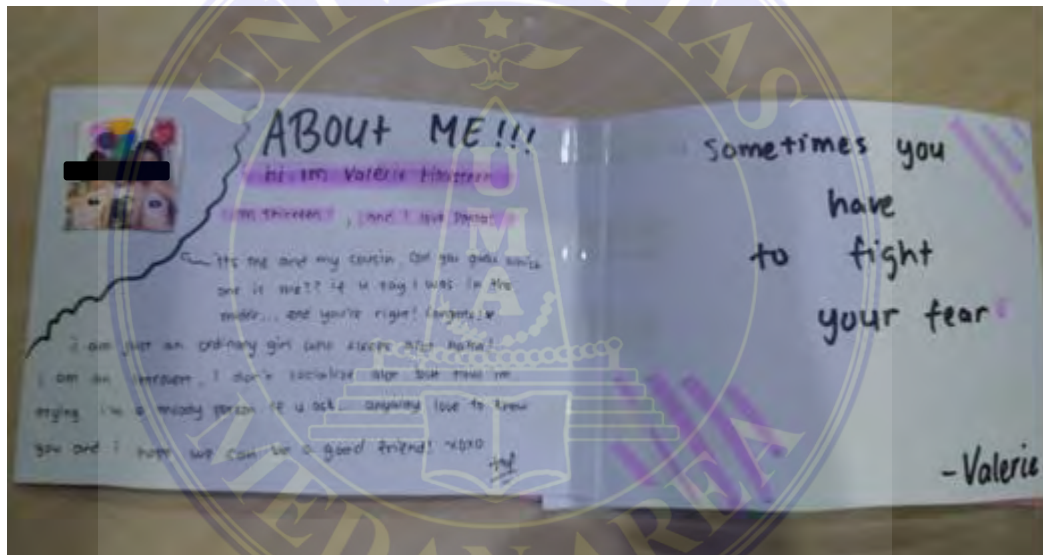 ABOUt ME!!!
hi im Valerie
im thirteen! , and I love
it's me and my cousin, can you guess which
one is me?? if u say I was in the
middle... and you're right!
i am just an ordinary girl who sleeps
i am an introvert, I don't socialize alot but now im
trying i'm a moody person if u ask... anyway love to know
you and i hope we can be a good friend! xoxo
Sometimes you
have
to fight
your fear
-Valerie
UNIVERSITAS
UMA
MEDAN AREA